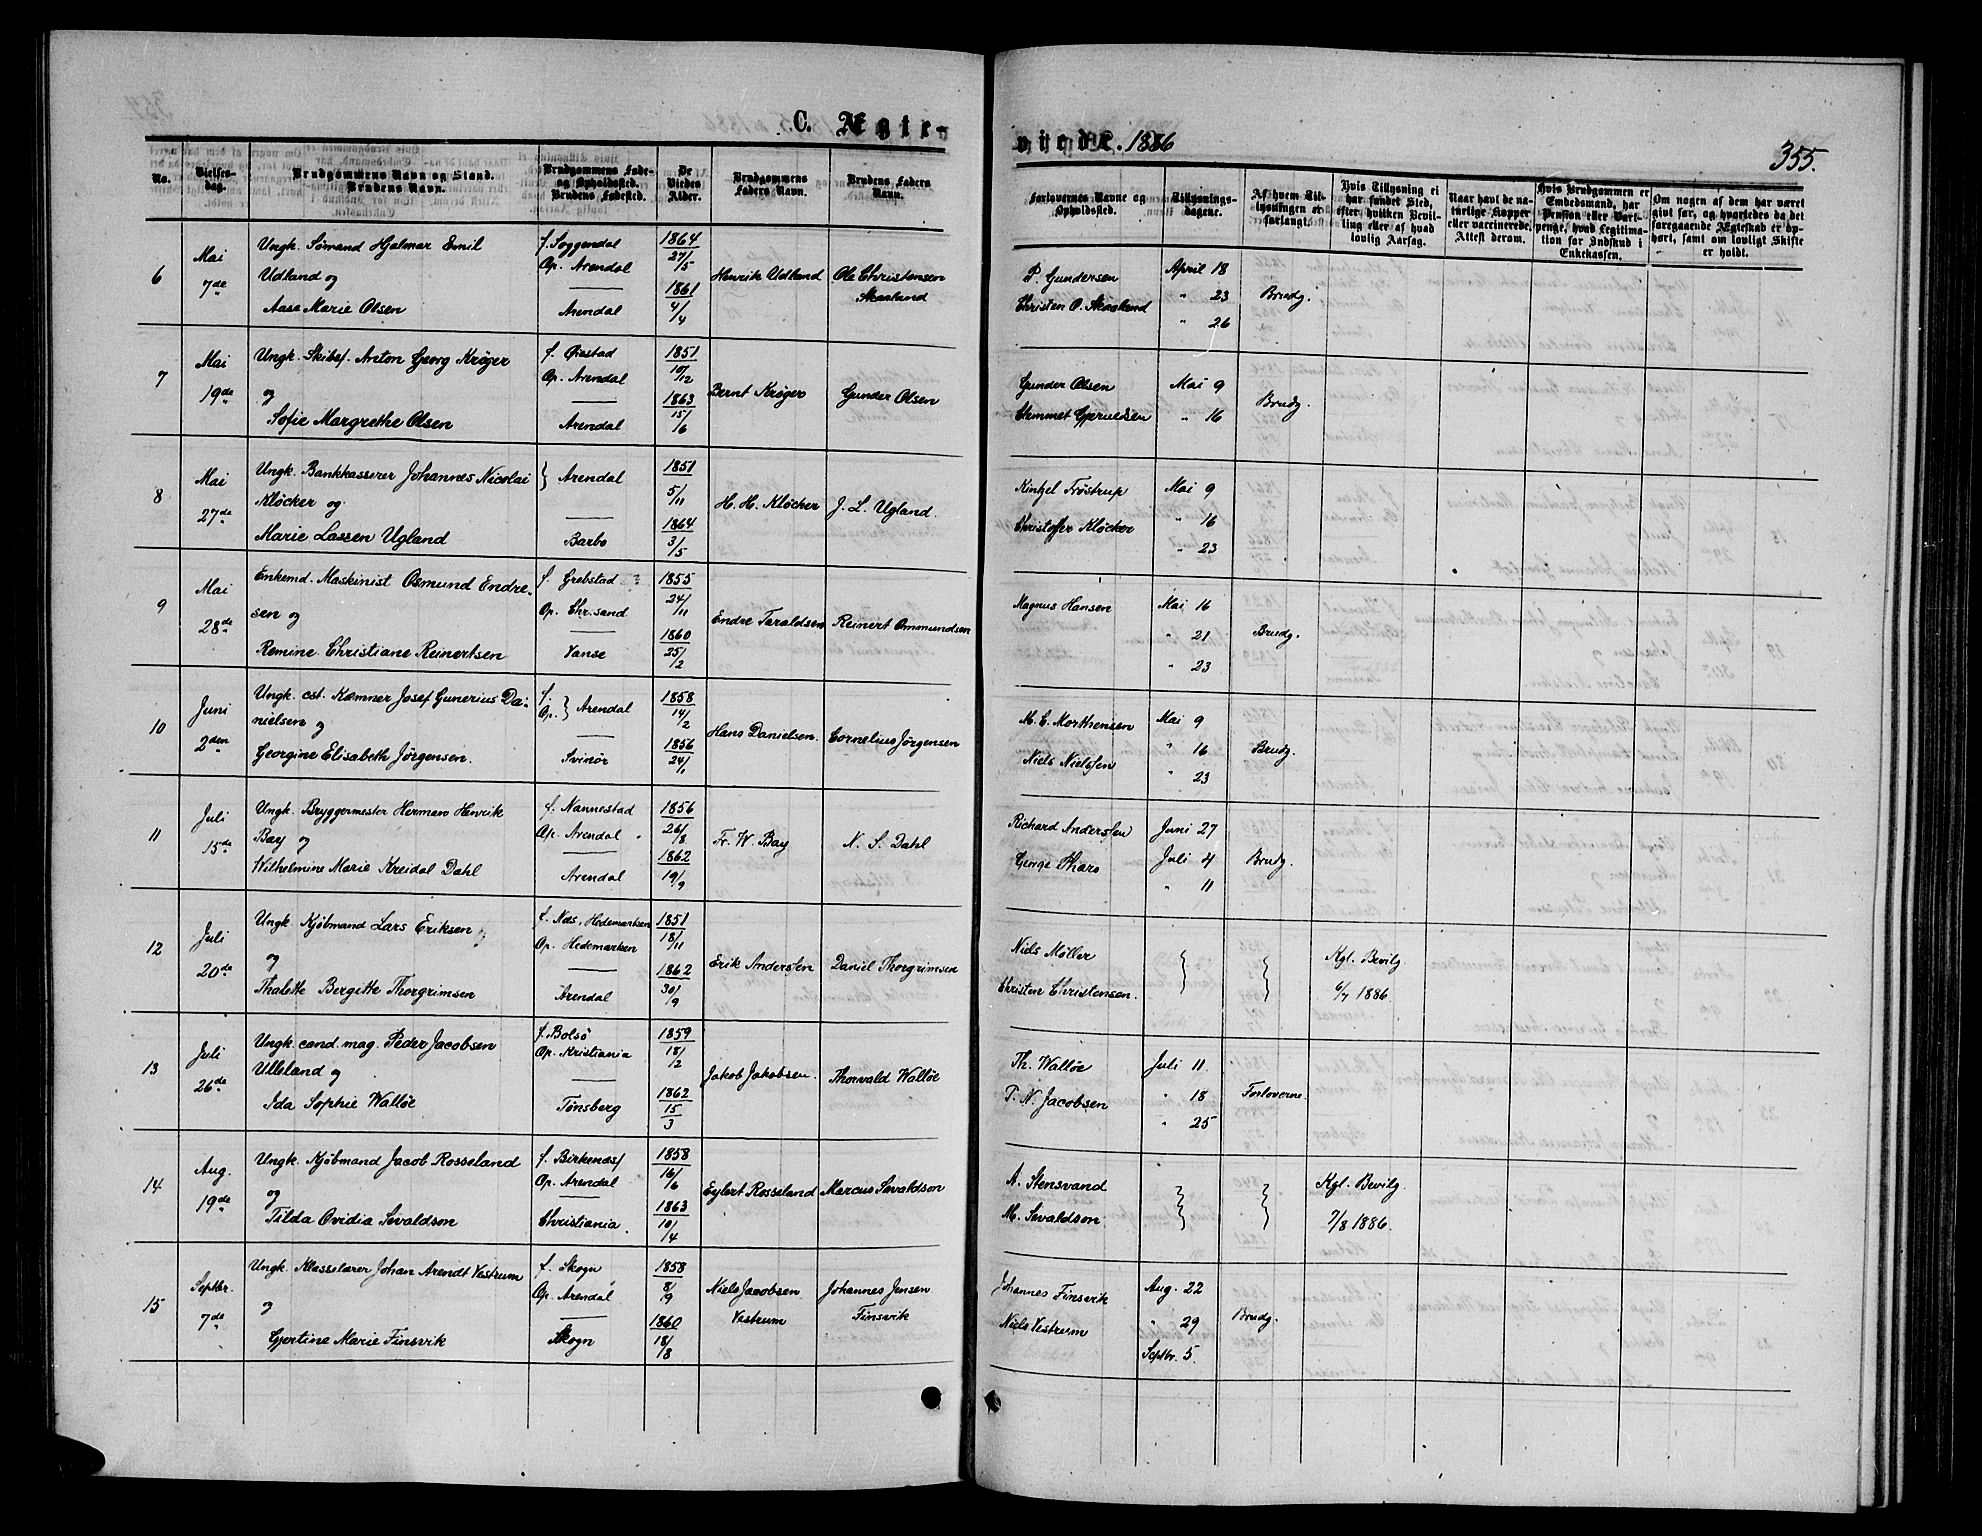 C. Ægte-
viede. 1886
355.
No.
Vielses-
dag.
Brudgommens Navn og Stand.
Brudens Navn.
Brudgommens Føde-
og Opholdssted.
Brudens Fødested.
De
Viedes
Alder.
Brudgommens
Faders Navn.
Brudens Faders
Navn.
Forlovernes Navne og
Opholdssted.
Tillysnings-
dagene.
Af hvem Til-
lysningen er
forlangt.
Hvis Tillysning ei
har fundet Sted,
efter hvilken Bevil-
ling eller af hvad
lovlig Aarsag.
Naar havt de na-
turlige Kopper
eller vaccinerede.
Attest derom.
Hvis Brudgommen er
Embedsmand, har
Pension eller Vart-
penge, hvad Legitima-
tion for Indskud i
Enkekassen.
Om nogen af dem har været
gift før, og hvorledes da det
foregaaende Ægteskab er op-
hørt, samt om lovligt Skifte
er holdt.
6
Mai
7de
Ungk. Sømand Hjalmar Emil
Udland og
Aase Marie Olsen
f. Soggendal
Op. Arendal
Arendal
1864
27/5
1861
4/4
Henrik Udland
Ole Christensen
Skaaland
P. Gundersen
Christen O. Skaaland
April 18
" 23
" 26
Brudg.
7
Mai
19de
Ungk. Skibsf. Anton Georg Krøger
og
Sofie Margrethe Olsen
f. Øiestad
Op. Arendal
Arendal
1851
10/12
1863
15/6
Bernt Krøger
Gunder Olsen
Gunder Olsen
Chemmet Gjeruldsen
Mai 9
" 16
Brudg.
8
Mai
27de
Ungk. Bankkasserer Johannes Nicolai
Kløcker og
Marie Lassen Ugland
} Arendal
Barbo
1851
5/11
1864
3/5
H. H. Kløcker
J. L. Ugland.
Kintzel Trøstrup
Christoffer Kløcker
Mai 9
" 16
" 23
9
Mai
28de
Enkemd. Maskinist Osmund Endre-
sen og
Remine Christiane Reinertsen
f. Grebstad
Op. Chr.sand
Vanse
1855
24/11
1860
25/2
Endre Taraldsen
Reinert Ommundsen
Magnus Hansen
Mai 16
" 21
" 23
Brudg.
10
Juni
2den
Ungk. cst. Kæmner Josef Gunerius Da-
nielsen og
Georgine Elisabeth Jørgensen.
f.
Op. } Arendal
Svinør
1858
14/2
1856
24/1
Hans Danielsen.
Cornelius Jørgensen
M. E. Morthensen
Niels Nielssen
Mai 9
" 16
" 23
Brudg.
11
Juli
15de
Ungk. Bryggermester Herman Henrik
Bay og
Wilhelmine Marie Kreidal Dahl
f. Nannestad
Op. Arendal
Arendal
1856
26/8
1862
19/9
Fr. W. Bay
N. S. Dahl
Richard Anderssen
George Tharo
Juni 27
Juli 4
" 11
Brudg.
12
Juli
20de
Ungk. Kjøbmand Lars Eriksen
og
Thalette Bergitte Thorgrimsen
f. Næs, Hedemarken
Op. Hedemarken
Arendal
1851
18/11
1862
30/9
Erik Anderssen
Daniel Thorgrimsen
Niels Møller
Christen Christensen.
Kgl. Bevilg.
6/7 1886.
13
Juli
26de
Ungk. cand. mag. Peder Jacobsen
Ulleland og
Ida Sophie Walløe
f. Bolsø
Op. Kristiania
Tønsberg
1859
18/2
1862
15/3
Jakob Jakobsen.
Thorvald Walløe
Th. Walløe
P. N. Jacobsen
Juli 11.
" 18
" 25
Forloverne.
14
Aug.
19de
Ungk. Kjøbmand Jacob Rosseland
og
Tilda Ovidia Sevaldson
f. Birkenæs
Op. Arendal
Christiania.
1858
16/6
1863
10/4
Eylert Rosseland
Marcus Sevaldson
A. Stensvand
M. Sevaldson
Kgl. Bevilg.
7/8 1886.
15
Septbr.
7de
Ungk. Klasselærer Johan Arendt Vestrum
og
Gjertine Marie Finsvik
f. Skogn
Op. Arendal
Skogn
1858
8/9
1860
18/8
Niels Jacobsen
Vestrum
Johannes Jensen
Finsvik
Johannes Finsvik
Niels Vestrum
Aug. 22
" 29
Septbr. 5.
Brudg.